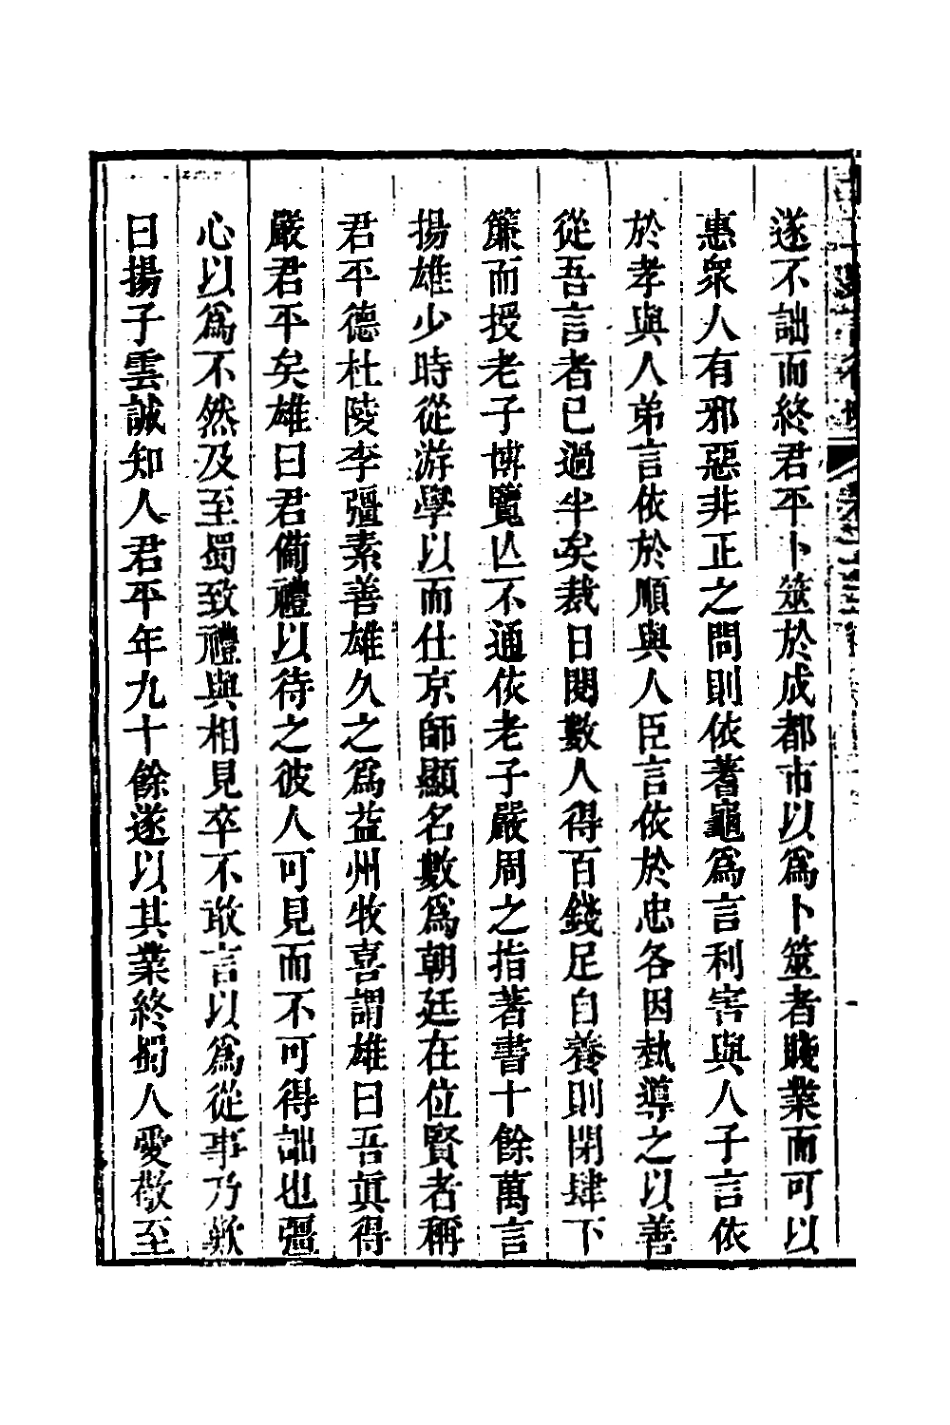 遂不詘而終君平卜筮於成都市以爲卜筮者賤業而可以
惠衆人有邪惡非正之問則依蓍龜爲言利害與人子言依
於孝與人弟言依於順與人臣言依於忠各因埶導之以善
從吾言者已過半矣裁日閱數人得百錢足自養則閉肆下
簾而授老子博覽亾不通依老子嚴周之指著書十餘萬言
揚雄少時從游學以而仕京師顯名數爲朝廷在位賢者稱
君平德杜陵李彊素善雄久之爲益州牧喜謂雄曰吾眞得
嚴君平矣雄曰君備禮以待之彼人可見而不可得詘也彊
心以爲不然及至蜀致禮與相見卒不敢言以爲從事乃歎
曰揚子雲誠知人君平年九十餘遂以其業終蜀人愛敬至